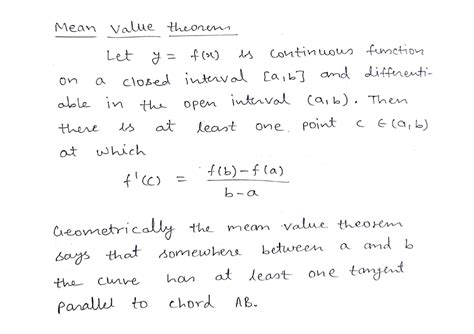 Mean Value theorem
Let y = f(x) is continuous function
on a closed interval [a,b] and differenti-
able in the open interval (a,b). Then
there is at least one point c ∈ (a,b)
at which
f'(c) = f(b)-f(a) / b-a
Geometrically the mean value theorem
says that somewhere between a and b
the curve has at least one tangent
parallel to chord AB.